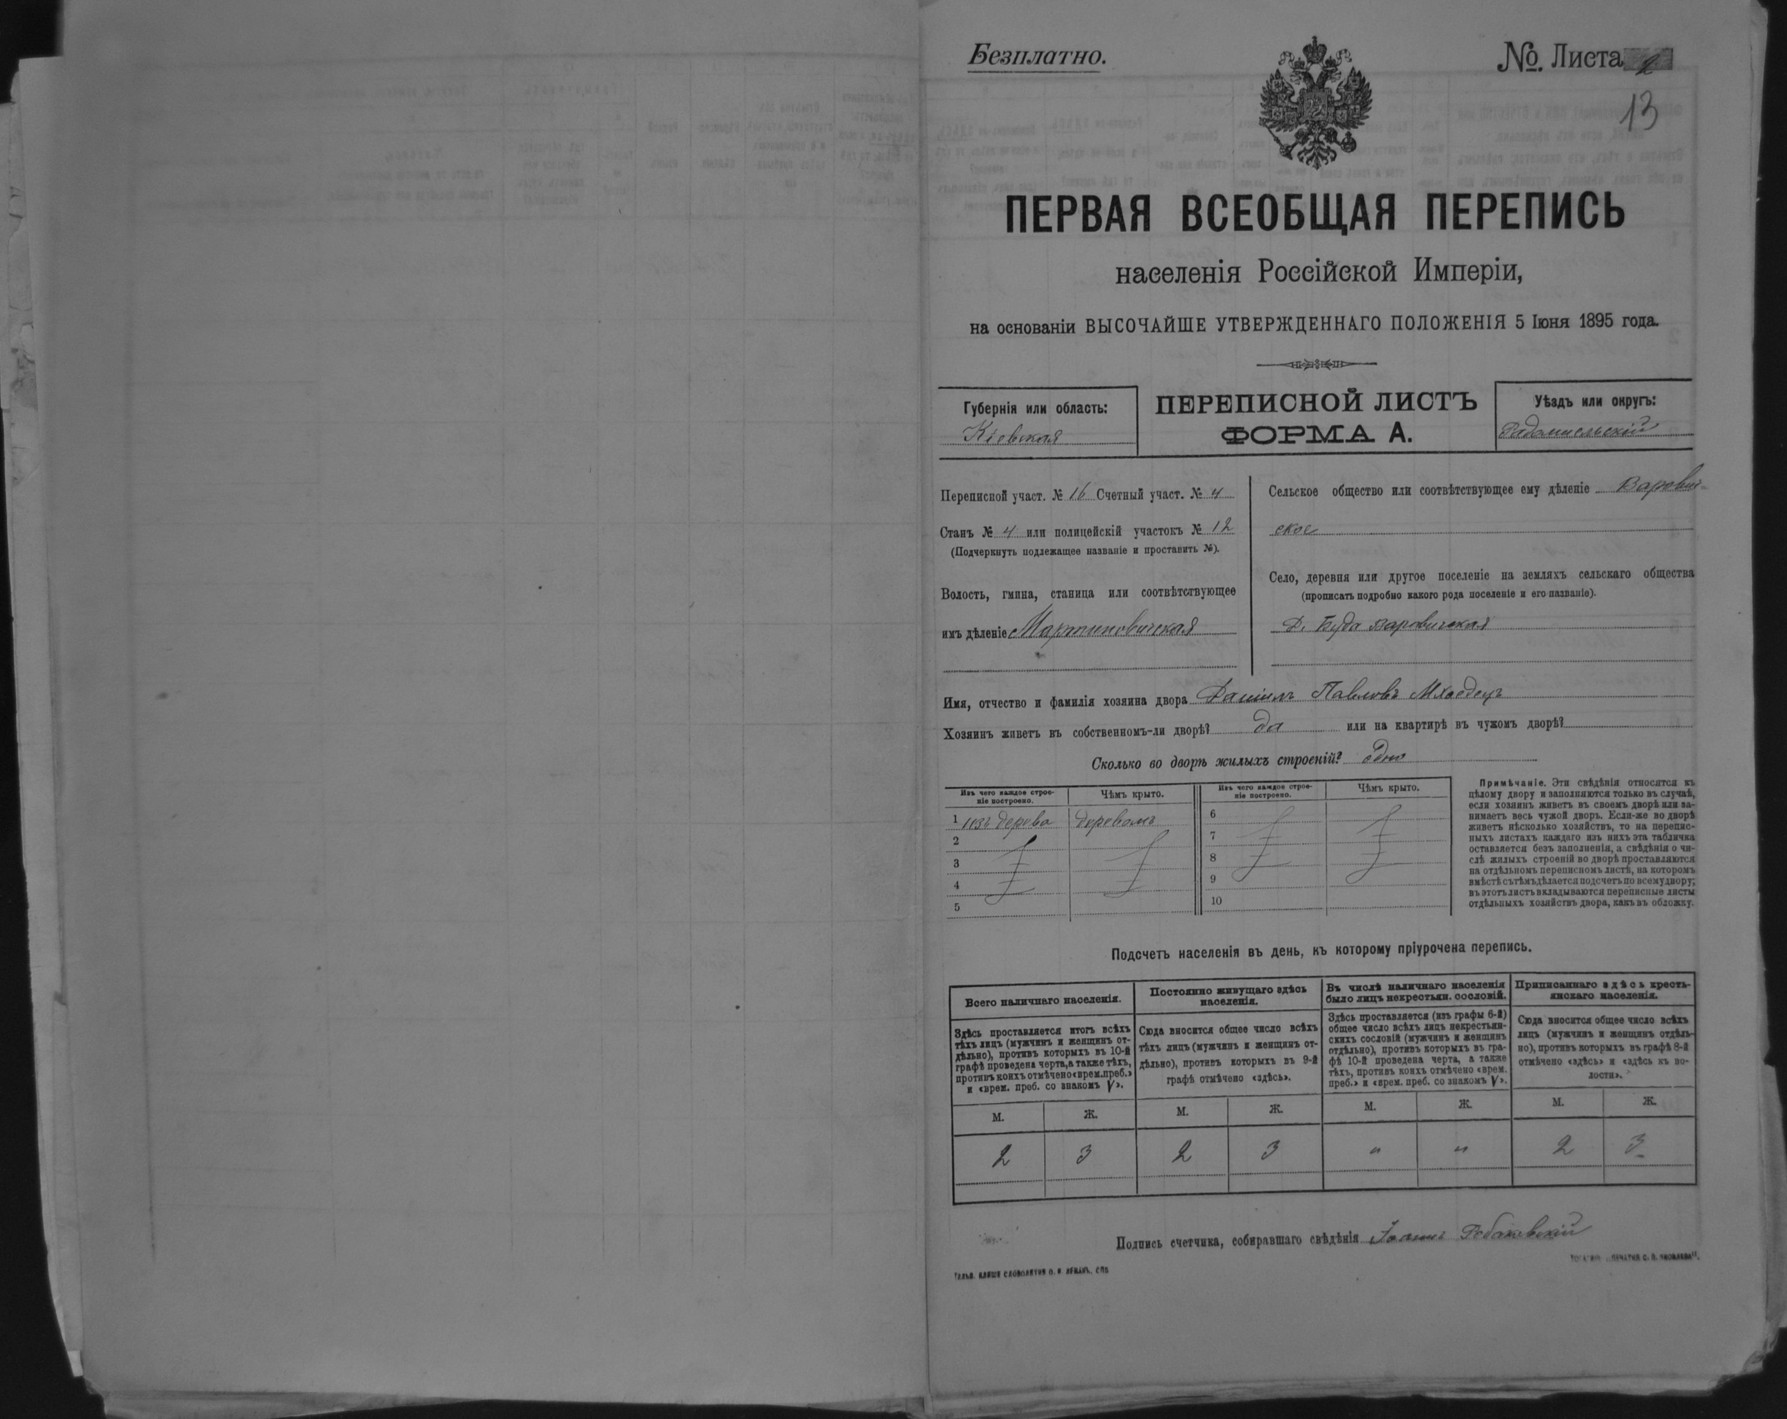 Безплатно.
№ Листа 2
13
ПЕРВАЯ ВСЕОБЩАЯ ПЕРЕПИСЬ
населенія Россійской Имперіи,
на основаніи ВЫСОЧАЙШЕ УТВЕРЖДЕННАГО ПОЛОЖЕНІЯ 5 Іюня 1895 года.
Губернія или область:
Кіевская
ПЕРЕПИСНОЙ ЛИСТЪ
ФОРМА А.
Уѣздъ или округъ:
Радомысльскій
Переписной участ. № 16 Счетный участ. № 4
Станъ № 4 или полицейскій участокъ № 12
(Подчеркнуть подлежащее названіе и проставить №).
Волость, гмина, станица или соотвѣтствующее
имъ дѣленіе Мартиновичская
Сельское общество или соотвѣтствующее ему дѣленіе Варович-
ское
Село, деревня или другое поселеніе на земляхъ сельскаго общества
(прописать подробно какого рода поселеніе и его названіе).
Д. Буда Варовичская
Имя, отчество и фамилія хозяина двора Даніилъ Павловъ
Хозяинъ живетъ въ собственномъ-ли дворѣ? да или на квартирѣ въ чужомъ дворѣ?
Сколько во дворѣ жилыхъ строеній? одно
Изъ чего каждое строе-
ніе построено.
Чѣмъ крыто.
1 изъ дерева деревомъ
2
3
4
5
Изъ чего каждое строе-
ніе построено.
Чѣмъ крыто.
6
7
8
9
10
Примѣчаніе. Эти свѣдѣнія относятся къ
цѣлому двору и заполняются только въ случаѣ,
если хозяинъ живетъ въ своемъ дворѣ или за-
нимаетъ весь чужой дворъ. Если-же во дворѣ
живетъ нѣсколько хозяйствъ, то на перепис-
ныхъ листахъ каждаго изъ нихъ эта табличка
оставляется безъ заполненія, а свѣдѣнія о чи-
слѣ жилыхъ строеній во дворѣ проставляются
на отдѣльномъ переписномъ листѣ, на которомъ
вмѣстѣ съ тѣмъ дѣлается подсчетъ по всему двору;
въ этотъ листъ вкладываются переписные листы
отдѣльныхъ хозяйствъ двора, какъ въ обложку.
Подсчетъ населенія въ день, къ которому пріурочена перепись.
Всего наличнаго населенія.
Здѣсь проставляется итогъ всѣхъ
тѣхъ лицъ (мужчинъ и женщинъ от-
дѣльно), противъ которыхъ въ 10-й
графѣ проведена черта, а также тѣхъ,
противъ коихъ отмѣчено «врем. преб.»
и «врем. преб. со знакомъ V».
М. Ж.
2 3
Постоянно живущаго здѣсь
населенія.
Сюда вносится общее число всѣхъ
тѣхъ лицъ (мужчинъ и женщинъ от-
дѣльно), противъ которыхъ въ 9-й
графѣ отмѣчено «здѣсь».
М. Ж.
2 3
Въ числѣ наличнаго населенія
было лицъ некрестьян. сословій.
Здѣсь проставляется (изъ графы 6-й)
общее число всѣхъ лицъ некрестьян-
скихъ сословій (мужчинъ и женщинъ
отдѣльно), противъ которыхъ въ гра-
фѣ 10-й проведена черта, а также
тѣхъ, противъ коихъ отмѣчено «врем.
преб.» и «врем. преб. со знакомъ V».
М. Ж.
" "
Приписаннаго здѣсь кресть-
янскаго населенія.
Сюда вносится общее число всѣхъ
лицъ (мужчинъ и женщинъ отдѣль-
но), противъ которыхъ въ графѣ 8-й
отмѣчено «здѣсь» и «здѣсь къ во-
лости».
М. Ж.
2 3
Подпись счетчика, собиравшаго свѣдѣнія